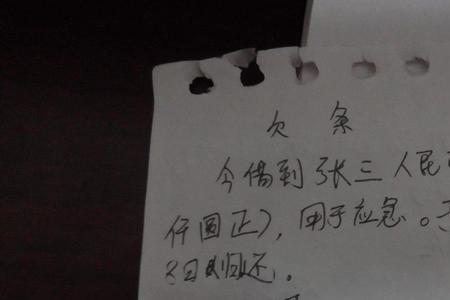 欠条
今借到张三人民
仟圆正),用于应急。
8日归还。